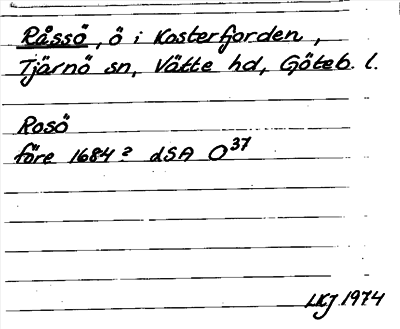 Råssö, ö i Kosterfjorden,
Tjärnö sn, Vätte hd, Göteb. l.
Rosö
före 1684? dSA O37
LKJ 1974